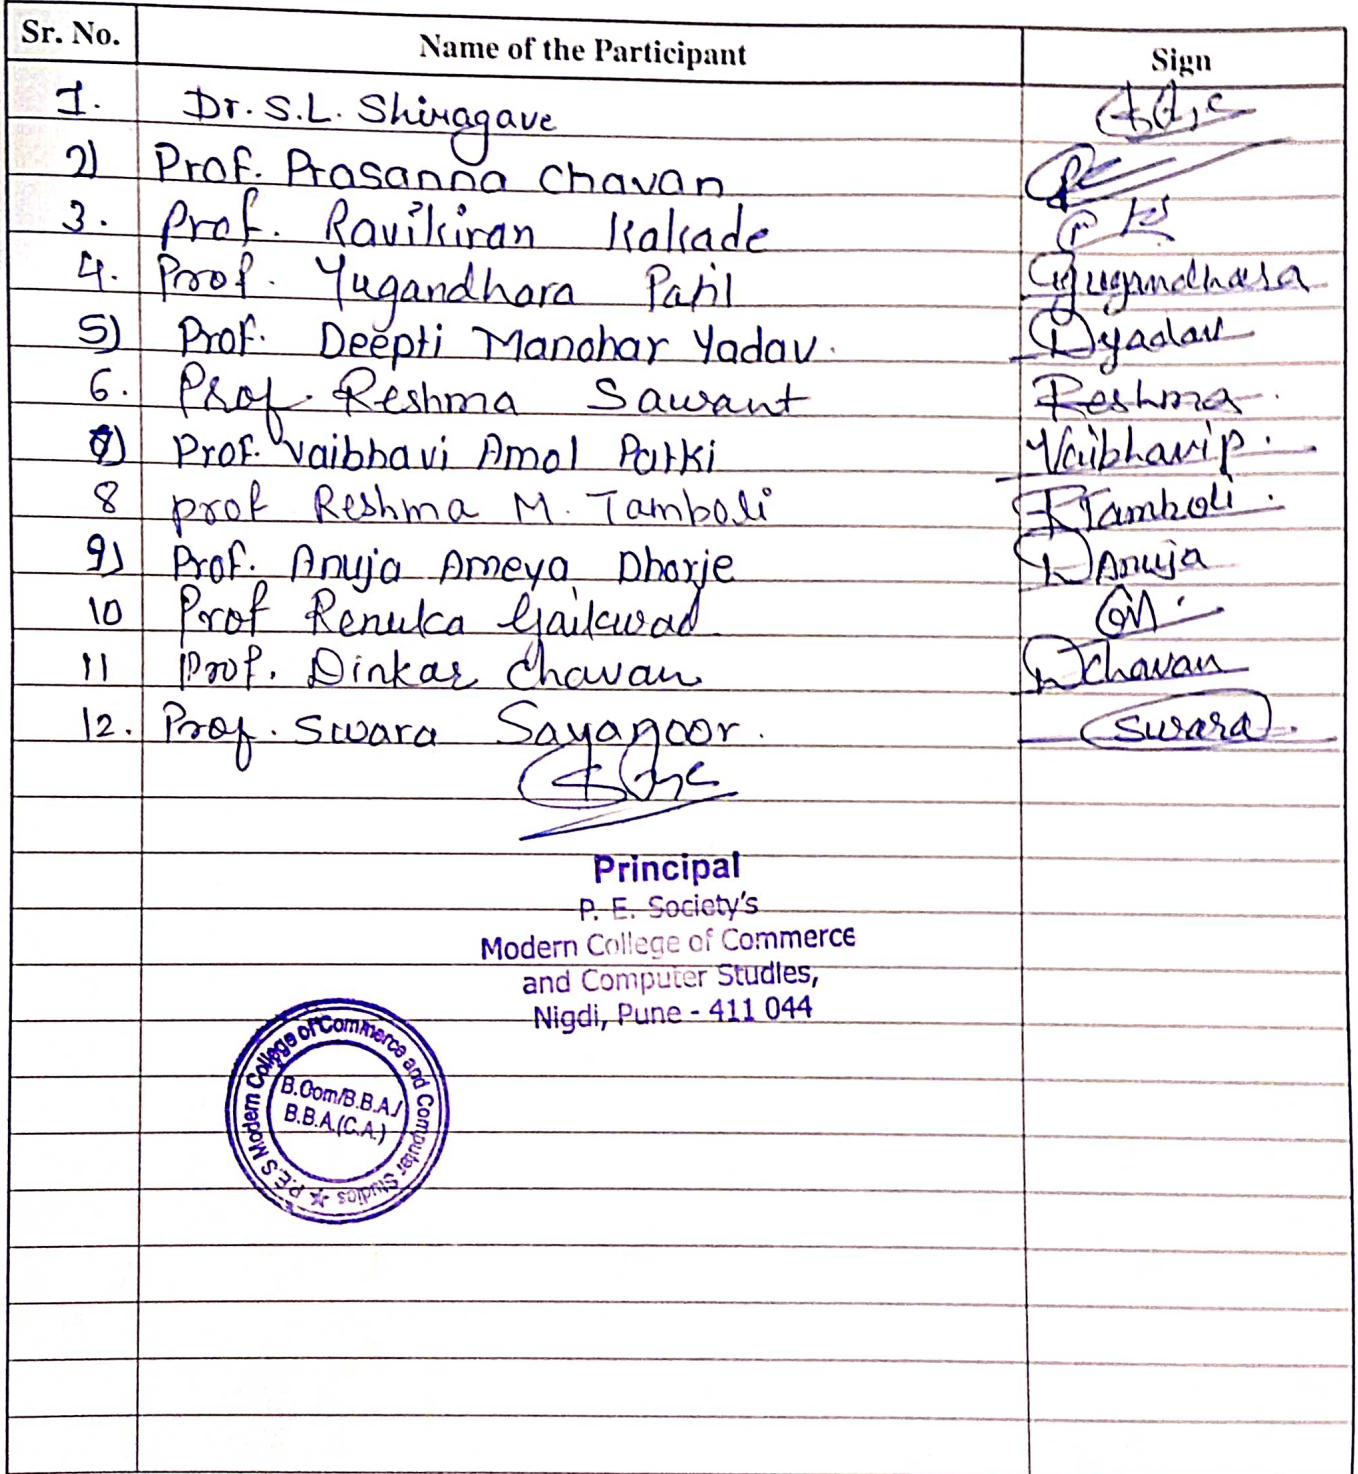 Sr. No. Name of the Participant Sign
1. Dr. S.L. Shiragave
2) Prof. Prasanna Chavan
3. Prof. Ravikiran Kakade
4. Prof. Yugandhara Patil Yugandhara
5) Prof. Deepti Manohar Yadav. Dyadav
6. Prof. Reshma Sawant Reshma.
7) Prof. Vaibhavi Amol Patki VaibhaviP.
8 prof Reshma M. Tamboli RTamboli.
9) Prof. Anuja Ameya Dharje DAnuja
10 Prof Renuka Gaikwad
11 Prof. Dinkar Chavan Dchavan
12. Prof. Swara Sayagoor. Swara.
Principal
P. E. Society's
Modern College of Commerce
and Computer Studies,
Nigdi, Pune - 411 044
P.E.S Modern College of Commerce and Computer Studies
B.Com/B.B.A./
B.B.A.(C.A.)